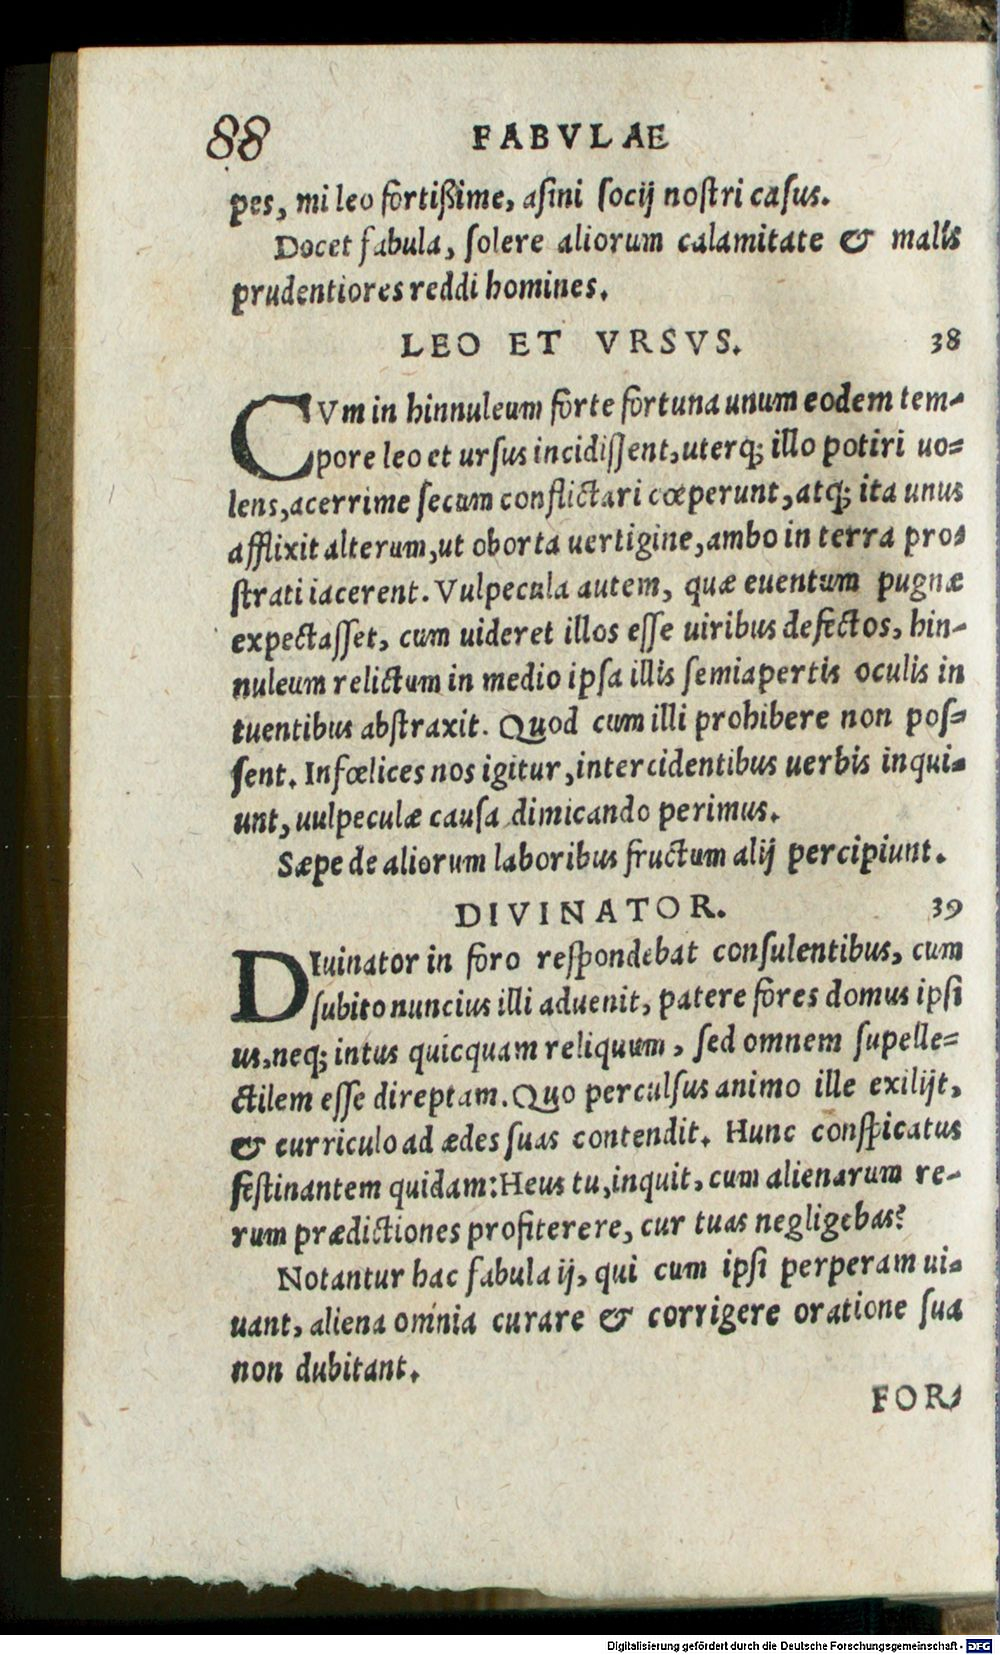 88 FABVLAE
pes, mi leo fortißime, asini socij nostri casus.
Docet fabula, solere aliorum calamitate & malis
prudentiores reddi homines.
LEO ET VRSVS. 38
CVm in hinnuleum forte fortuna unum eodem tem-
pore leo et ursus incidissent, uterq; illo potiri uo=
lens, acerrime secum conflictari cœperunt, atq; ita unus
afflixit alterum, ut oborta uertigine, ambo in terra pro=
strati iacerent. Vulpecula autem, quæ euentum pugnæ
expectasset, cum uideret illos esse uiribus defectos, hin-
nuleum relictum in medio ipsa illis semiapertis oculis in
tuentibus abstraxit. Quod cum illi prohibere non pos=
sent. Infœlices nos igitur, intercidentibus uerbis inqui=
unt, uulpeculæ causa dimicando perimus.
Sæpe de aliorum laboribus fructum alij percipiunt.
DIVINATOR. 39
DIuinator in foro respondebat consulentibus, cum
subito nuncius illi aduenit, patere fores domus ipsi
us, neq; intus quicquam reliquum, sed omnem supelle=
ctilem esse direptam. Quo perculsus animo ille exilijt,
& curriculo ad ædes suas contendit. Hunc conspicatus
festinantem quidam: Heus tu, inquit, cum alienarum re-
rum prædictiones profiterere, cur tuas negligebas?
Notantur hac fabula ij, qui cum ipsi perperam ui=
uant, aliena omnia curare & corrigere oratione sua
non dubitant.
FOR-
Digitalisierung gefördert durch die Deutsche Forschungsgemeinschaft - DFG